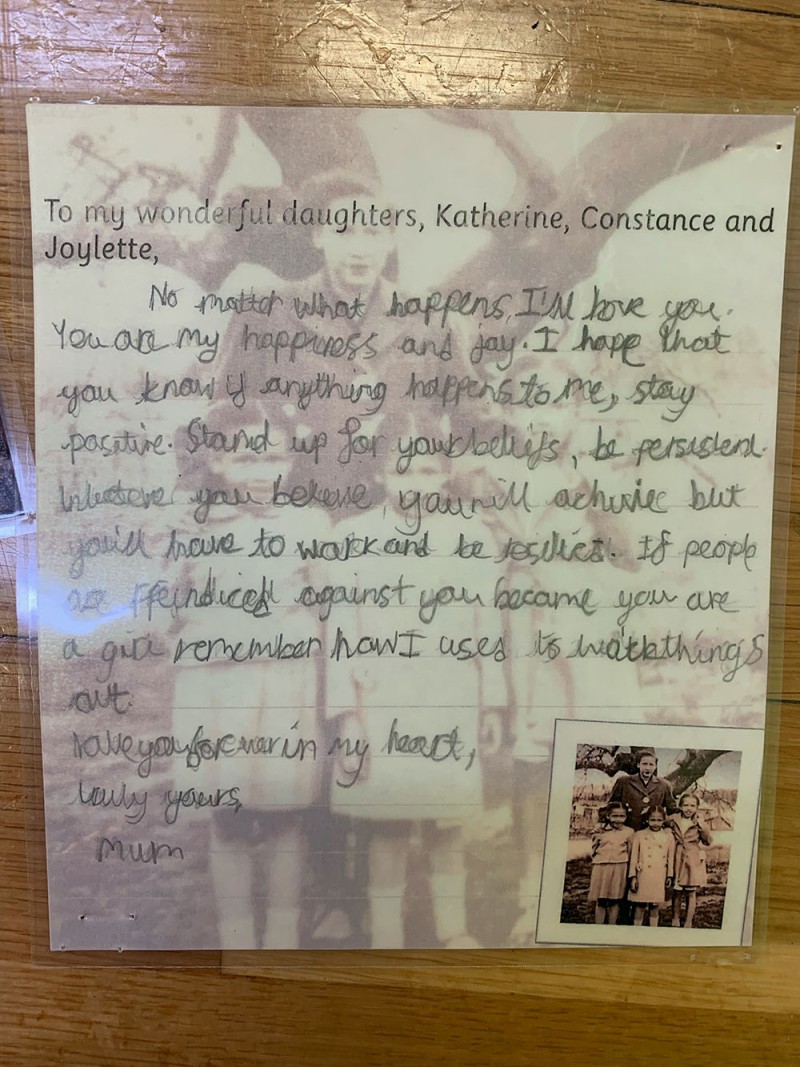 To my wonderful daughters, Katherine, Constance and
Joylette,
No matter what happens, I'll love you.
You are my happiness and joy. I hope that
you know if anything happens to me, stay
positive. Stand up for your beliefs, be persistent.
you believe, you will achieve but
you'll have to work and be. If people
are against you because you are
a girl remember how I used to work things
out.
you forever in my heart,
truly yours,
Mum